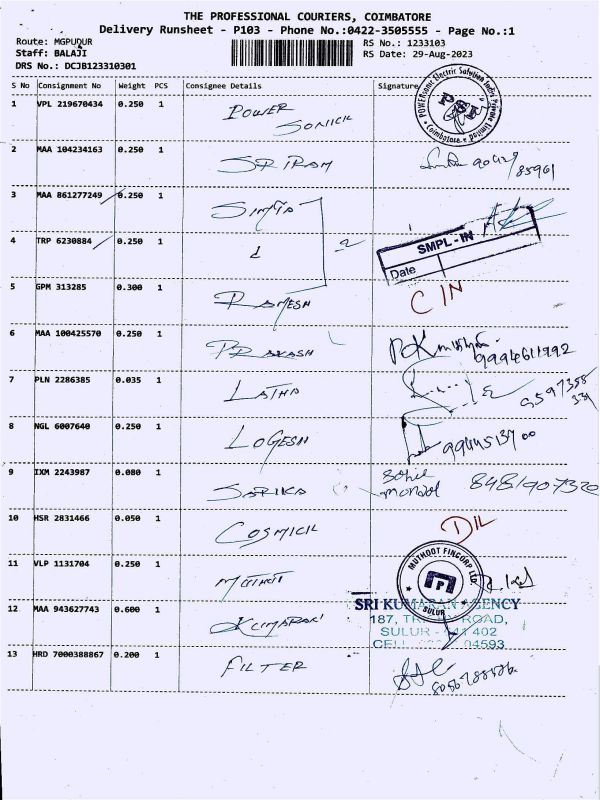 THE PROFESSIONAL COURIERS, COIMBATORE
Delivery Runsheet - P103 - Phone No.:0422-3505555 - Page No.:1
Route: MGPUDUR RS No.: 1233103
Staff: BALAJI RS Date: 29-Aug-2023
DRS No.: DCJB123310301
S No Consignment No Weight PCS Consignee Details Signature
1 VPL 219670434 0.250 1 POWER SONICK
POWERsonic Electric Solution India Private Limited
PSI
Coimbatore
2 MAA 104234163 0.250 1 SRIRAM 90429
85961
3 MAA 861277249 0.250 1
4 TRP 6230884 0.250 1 2
SMPL-IN
Date
5 GPM 313285 0.300 1 RAMESH CIN
6 MAA 100425570 0.250 1 PRAKASH 9994611992
7 PLN 2286385 0.035 1 LATHA
8 NGL 6007640 0.250 1 LOGESH
9 IXM 2243987 0.080 1 SARIKA 8481907320
10 HSR 2831466 0.050 1 COSMICK DIL
11 VLP 1131704 0.250 1
MUTHOOT FINCORP LTD
SULUR
12 MAA 943627743 0.600 1 KUMARAN
SRI KUMARAN AGENCY
187, ROAD,
SULUR 402
CELL 04593
13 HRD 7000388867 0.200 1 FILTER